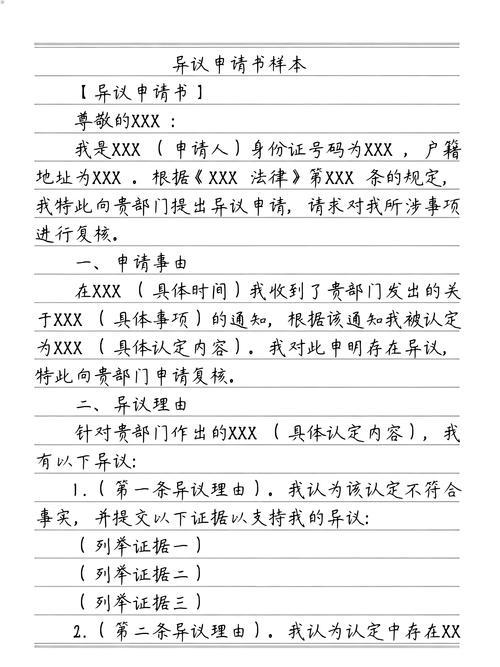 异议申请书样本
【异议申请书】
尊敬的XXX：
我是XXX（申请人）身份证号码为XXX，户籍
地址为XXX。根据《XXX 法律》第XXX 条的规定，
我特此向贵部门提出异议申请，请求对我所涉事项
进行复核。
一、申请事由
在XXX（具体时间）我收到了贵部门发出的关
于XXX（具体事项）的通知，根据该通知我被认定
为XXX（具体认定内容）。我对此申明存在异议，
特此向贵部门申请复核。
二、异议理由
针对贵部门作出的XXX（具体认定内容），我
有以下异议：
1.（第一条异议理由）。我认为该认定不符合
事实，并提交以下证据以支持我的异议：
（列举证据一）
（列举证据二）
（列举证据三）
2.（第二条异议理由）。我认为认定中存在XX